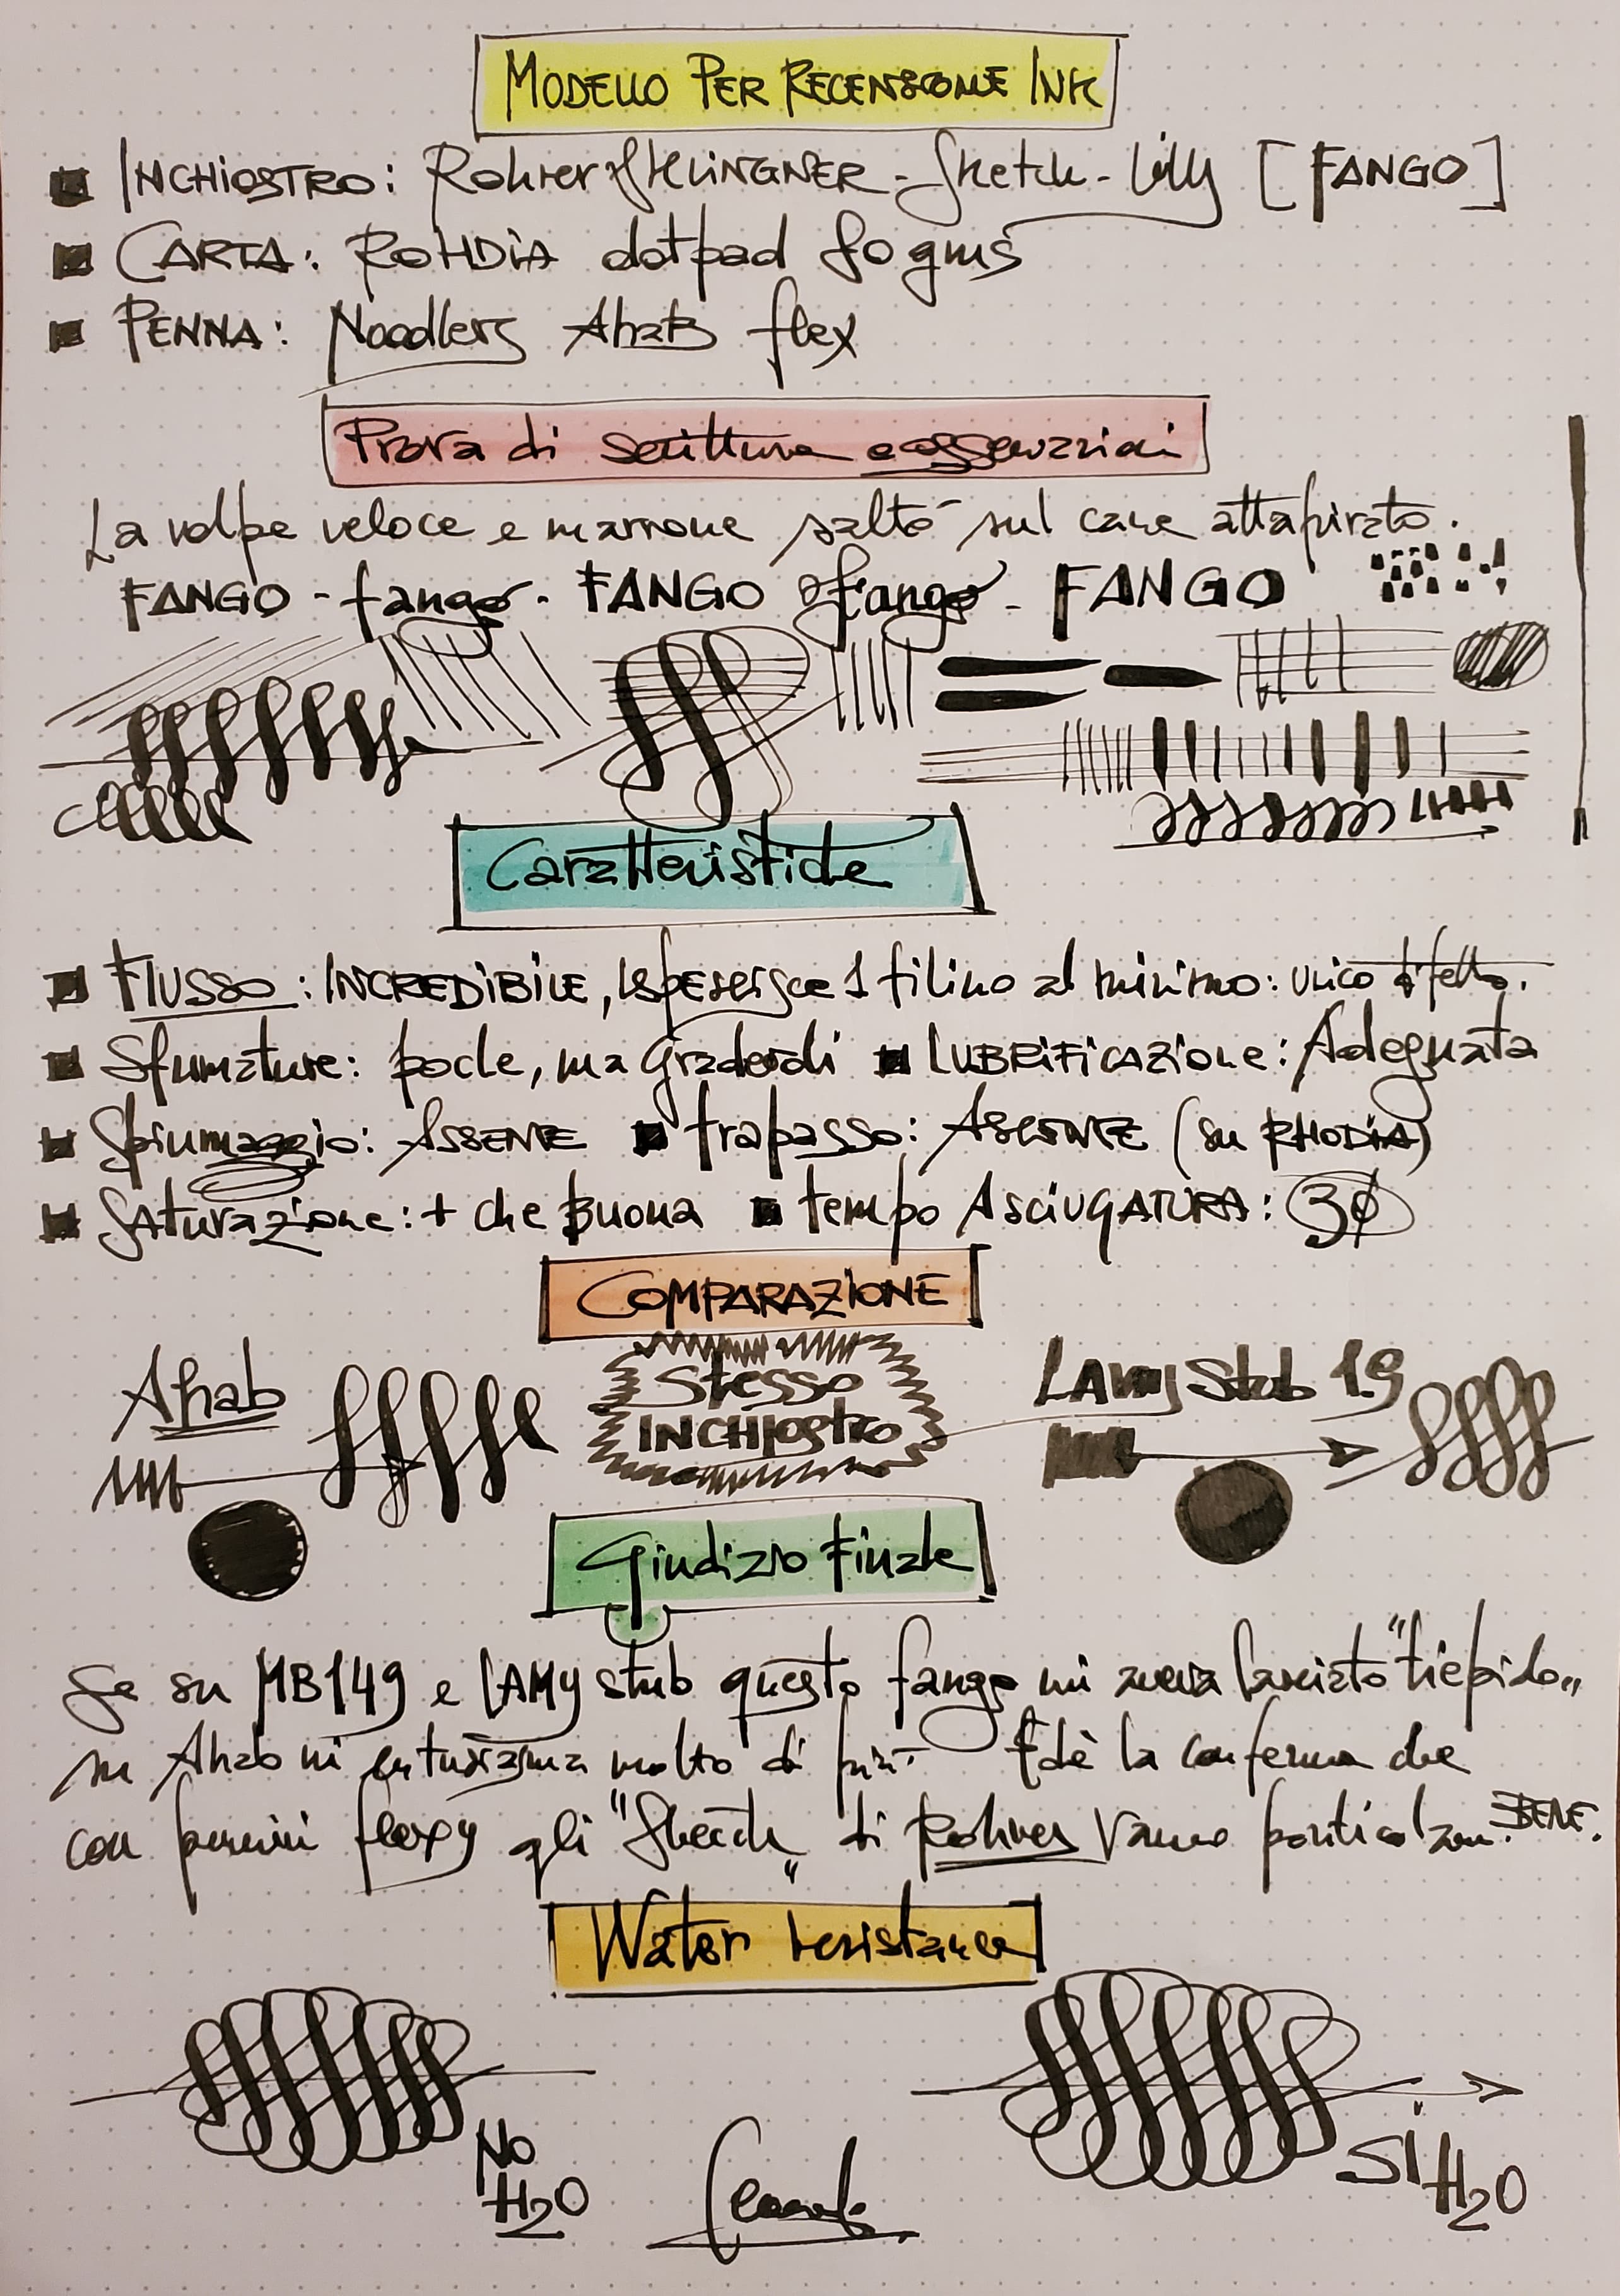 MODELLO PER RECENSIONE INK
INCHIOSTRO: Rohrer & KLINGNER - Sketch - Lilly [FANGO]
CARTA: ROHDIA dotpad 80 gms
PENNA: Noodlers AhaB flex
Prova di scrittura e osservazioni
La volpe veloce e marrone saltò sul cane attapirato.
FANGO - fango - FANGO fango - FANGO
Caratteristiche
FLUSSO: INCREDIBILE, 1 filino al minimo: unico difetto.
Sfumature: poche, ma gradevoli LUBRIFICAZIONE: Adeguata
Spiumaggio: ASSENTE trapasso: ASSENTE (su RHODIA)
SATurazione: + che Buona tempo ASCIUGATURA: 30
COMPARAZIONE
Ahab
Stesso
INCHIOStro
LAmy Stub 1.9
Giudizio Finale
Se su MB149 e LAMY stub questo fango mi aveva lasciato "tiepido"
su Ahab mi entusiasma molto di più. Ed è la conferma che
con pennini flexy gli "Sketch" di Rohrer Vanno BENE.
Water resistance
No
H2O
SI H2O